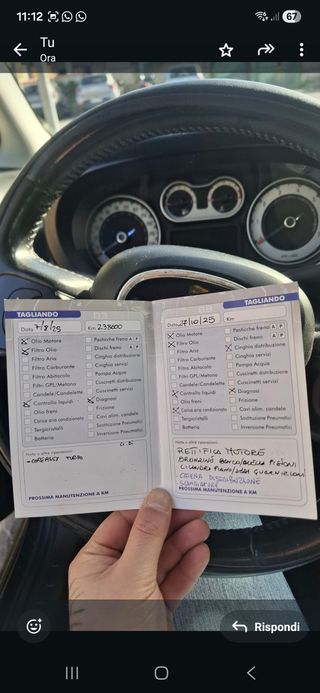 11:12
67
Tu
Ora
TAGLIANDO
Data 7/8/25 Km 238000
Olio Motore
Filtro Olio
Filtro Aria
Filtro Carburante
Filtro Abitacolo
Filtri GPL/Metano
Candele/Candelette
Controllo liquidi
Olio freni
Carica aria condizionata
Tergicristalli
Batteria
Pasticche freno A P
Dischi freno A P
Cinghia distribuzione
Cinghia servizi
Pompa Acqua
Cuscinetti distribuz.
Cuscinetti servizi
Diagnosi
Frizione
Cavi alim. candele
Sostituzione Pneumatici
Inversione Pneumatici
Note o altre operazioni:
TURBO
PROSSIMA MANUTENZIONE A KM
TAGLIANDO
Data 27/10/25 Km
Olio Motore
Filtro Olio
Filtro Aria
Filtro Carburante
Filtro Abitacolo
Filtri GPL/Metano
Candele/Candelette
Controllo liquidi
Olio freni
Carica aria condizionata
Tergicristalli
Batteria
Pasticche freno A P
Dischi freno A P
Cinghia distribuzione
Cinghia servizi
Pompa Acqua
Cuscinetti distribuz.
Cuscinetti servizi
Diagnosi
Frizione
Cavi alim. candele
Sostituzione Pneumatici
Inversione Pneumatici
Note o altre operazioni:
RETTIFICA MOTORE
BRONZINE BANCO/BIELLA PISTONI
CILINDRI GUARNIZIONI
CATENA DISTRIBUZIONE
PROSSIMA MANUTENZIONE A KM
Rispondi